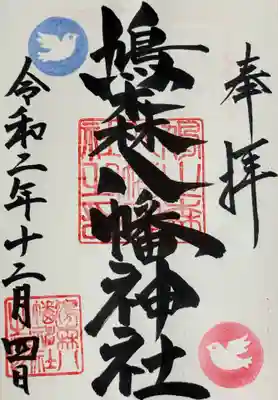 奉拝
鳩森八幡神社
令和二年十二月四日